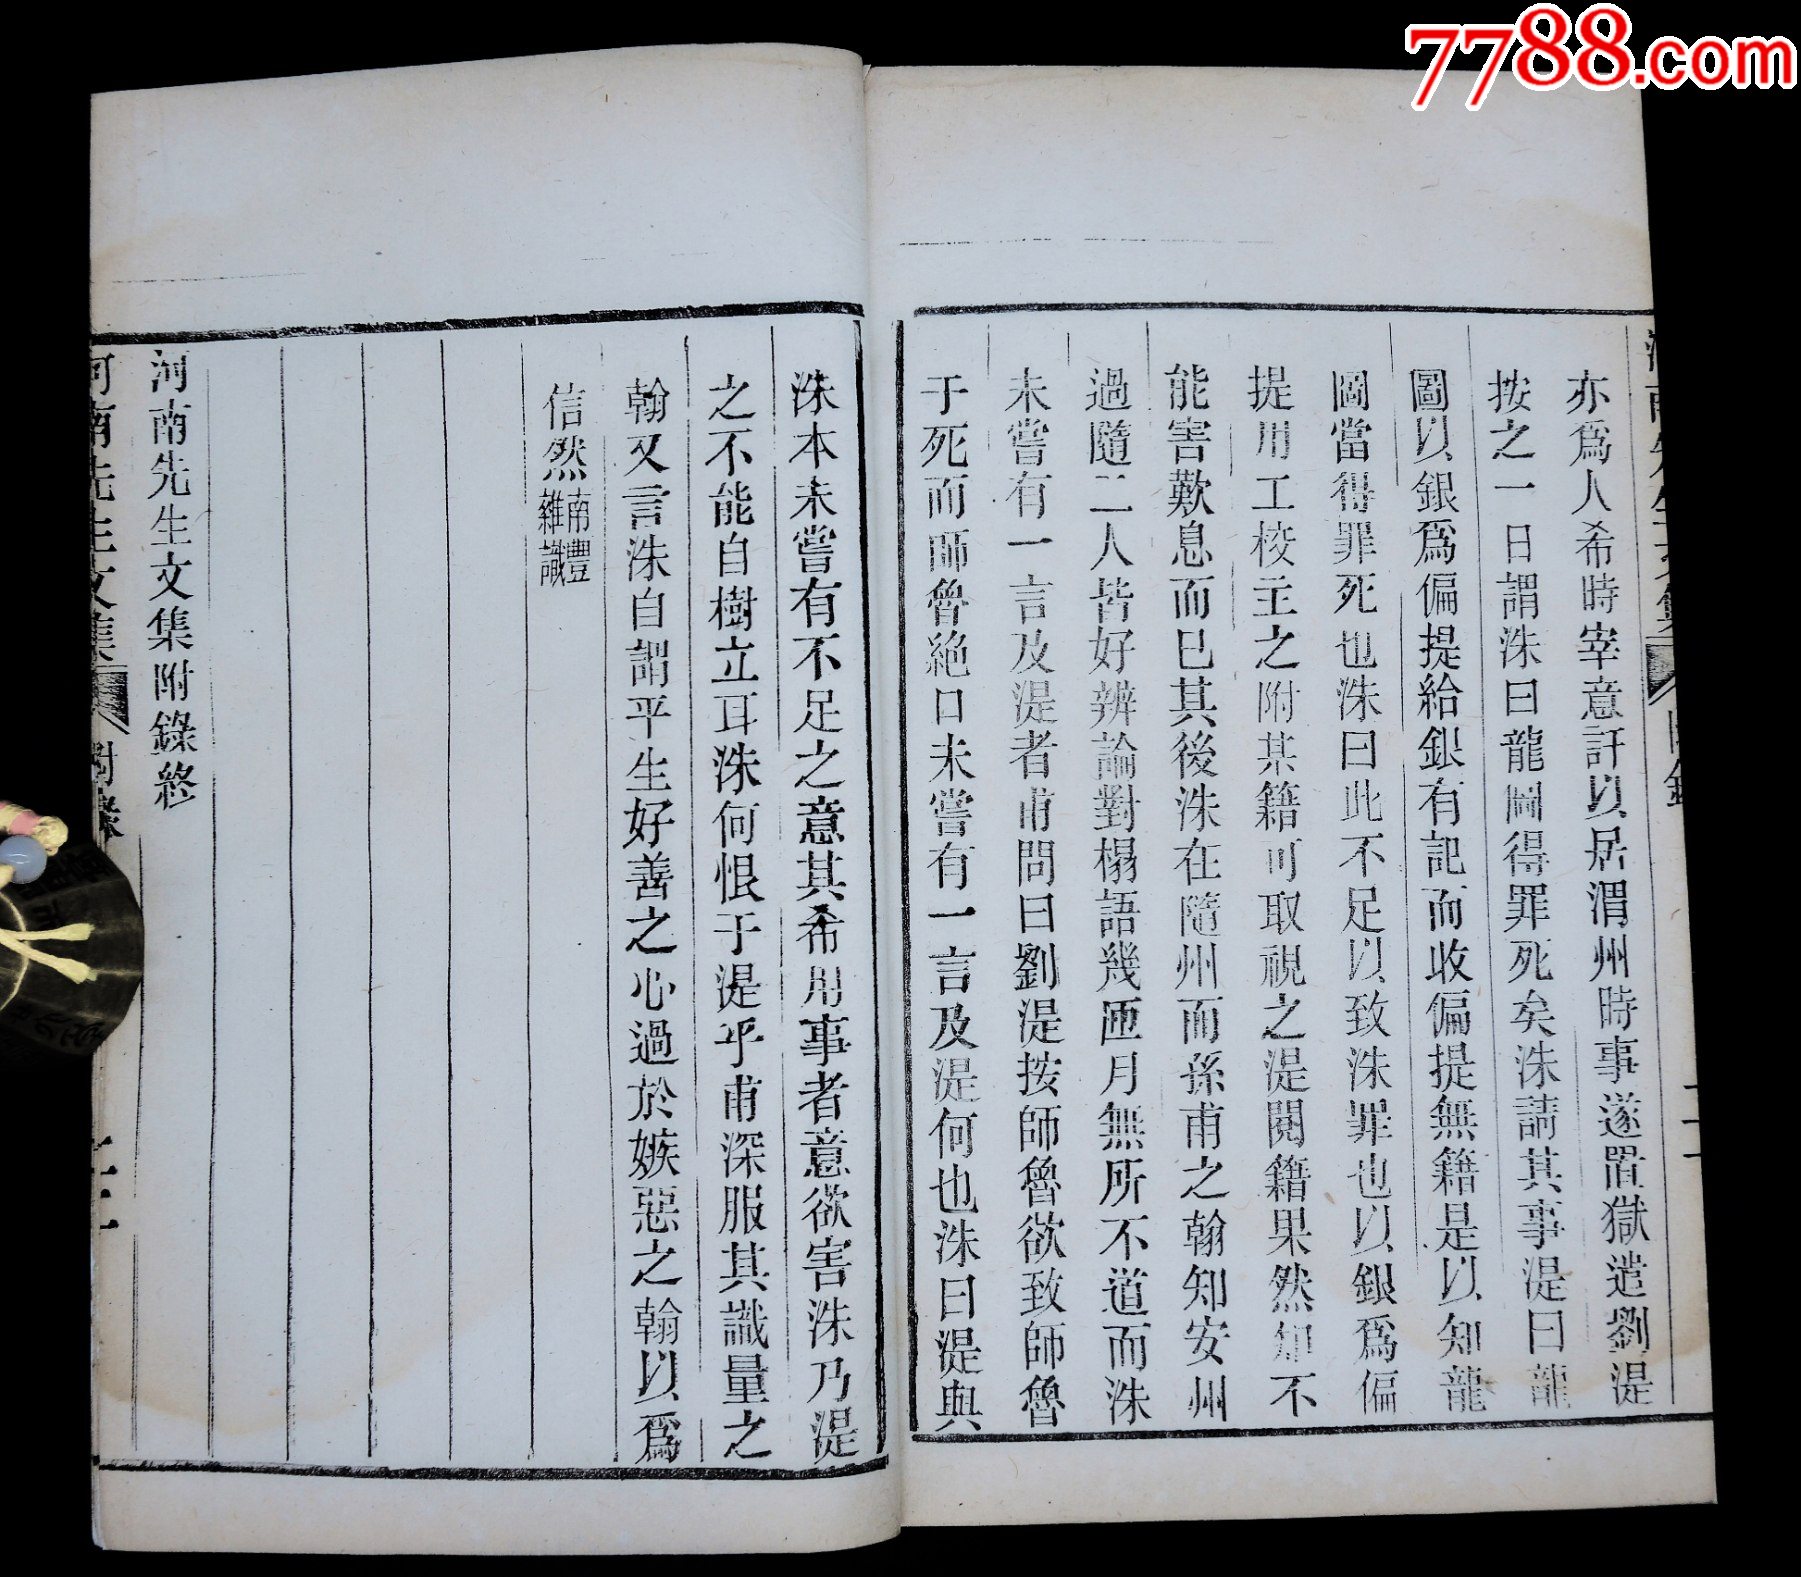 7788.com
亦為人希時宰意訐以居渭州時事遂置獄遣劉湜
按之一日謂洙曰龍圖得罪死矣洙請其事湜曰龍
圖以銀為偏提給銀有記而收偏提無籍是以知龍
圖當得罪死也洙曰此不足以致洙罪也以銀為偏
提用工校主之附某籍可取視之湜閱籍果然知不
能害歎息而已其後洙在隨州而孫甫之翰知安州
過隨二人皆好辨論對榻語幾匝月無所不道而洙
未嘗有一言及湜者甫問曰劉湜按師魯欲致師魯
于死而師魯絕口未嘗有一言及湜何也洙曰湜與
洙本未嘗有不足之意其希用事者意欲害洙乃湜
之不能自樹立耳洙何恨于湜乎甫深服其識量之
翰又言洙自謂平生好善之心過於嫉惡之翰以為
信然南豐
雜識
河南先生文集附錄終
河南先生文集 附錄